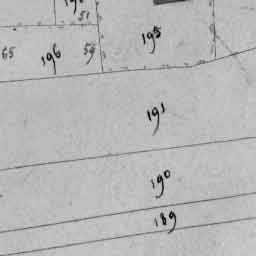 51
65 196 59 195
191
190
189